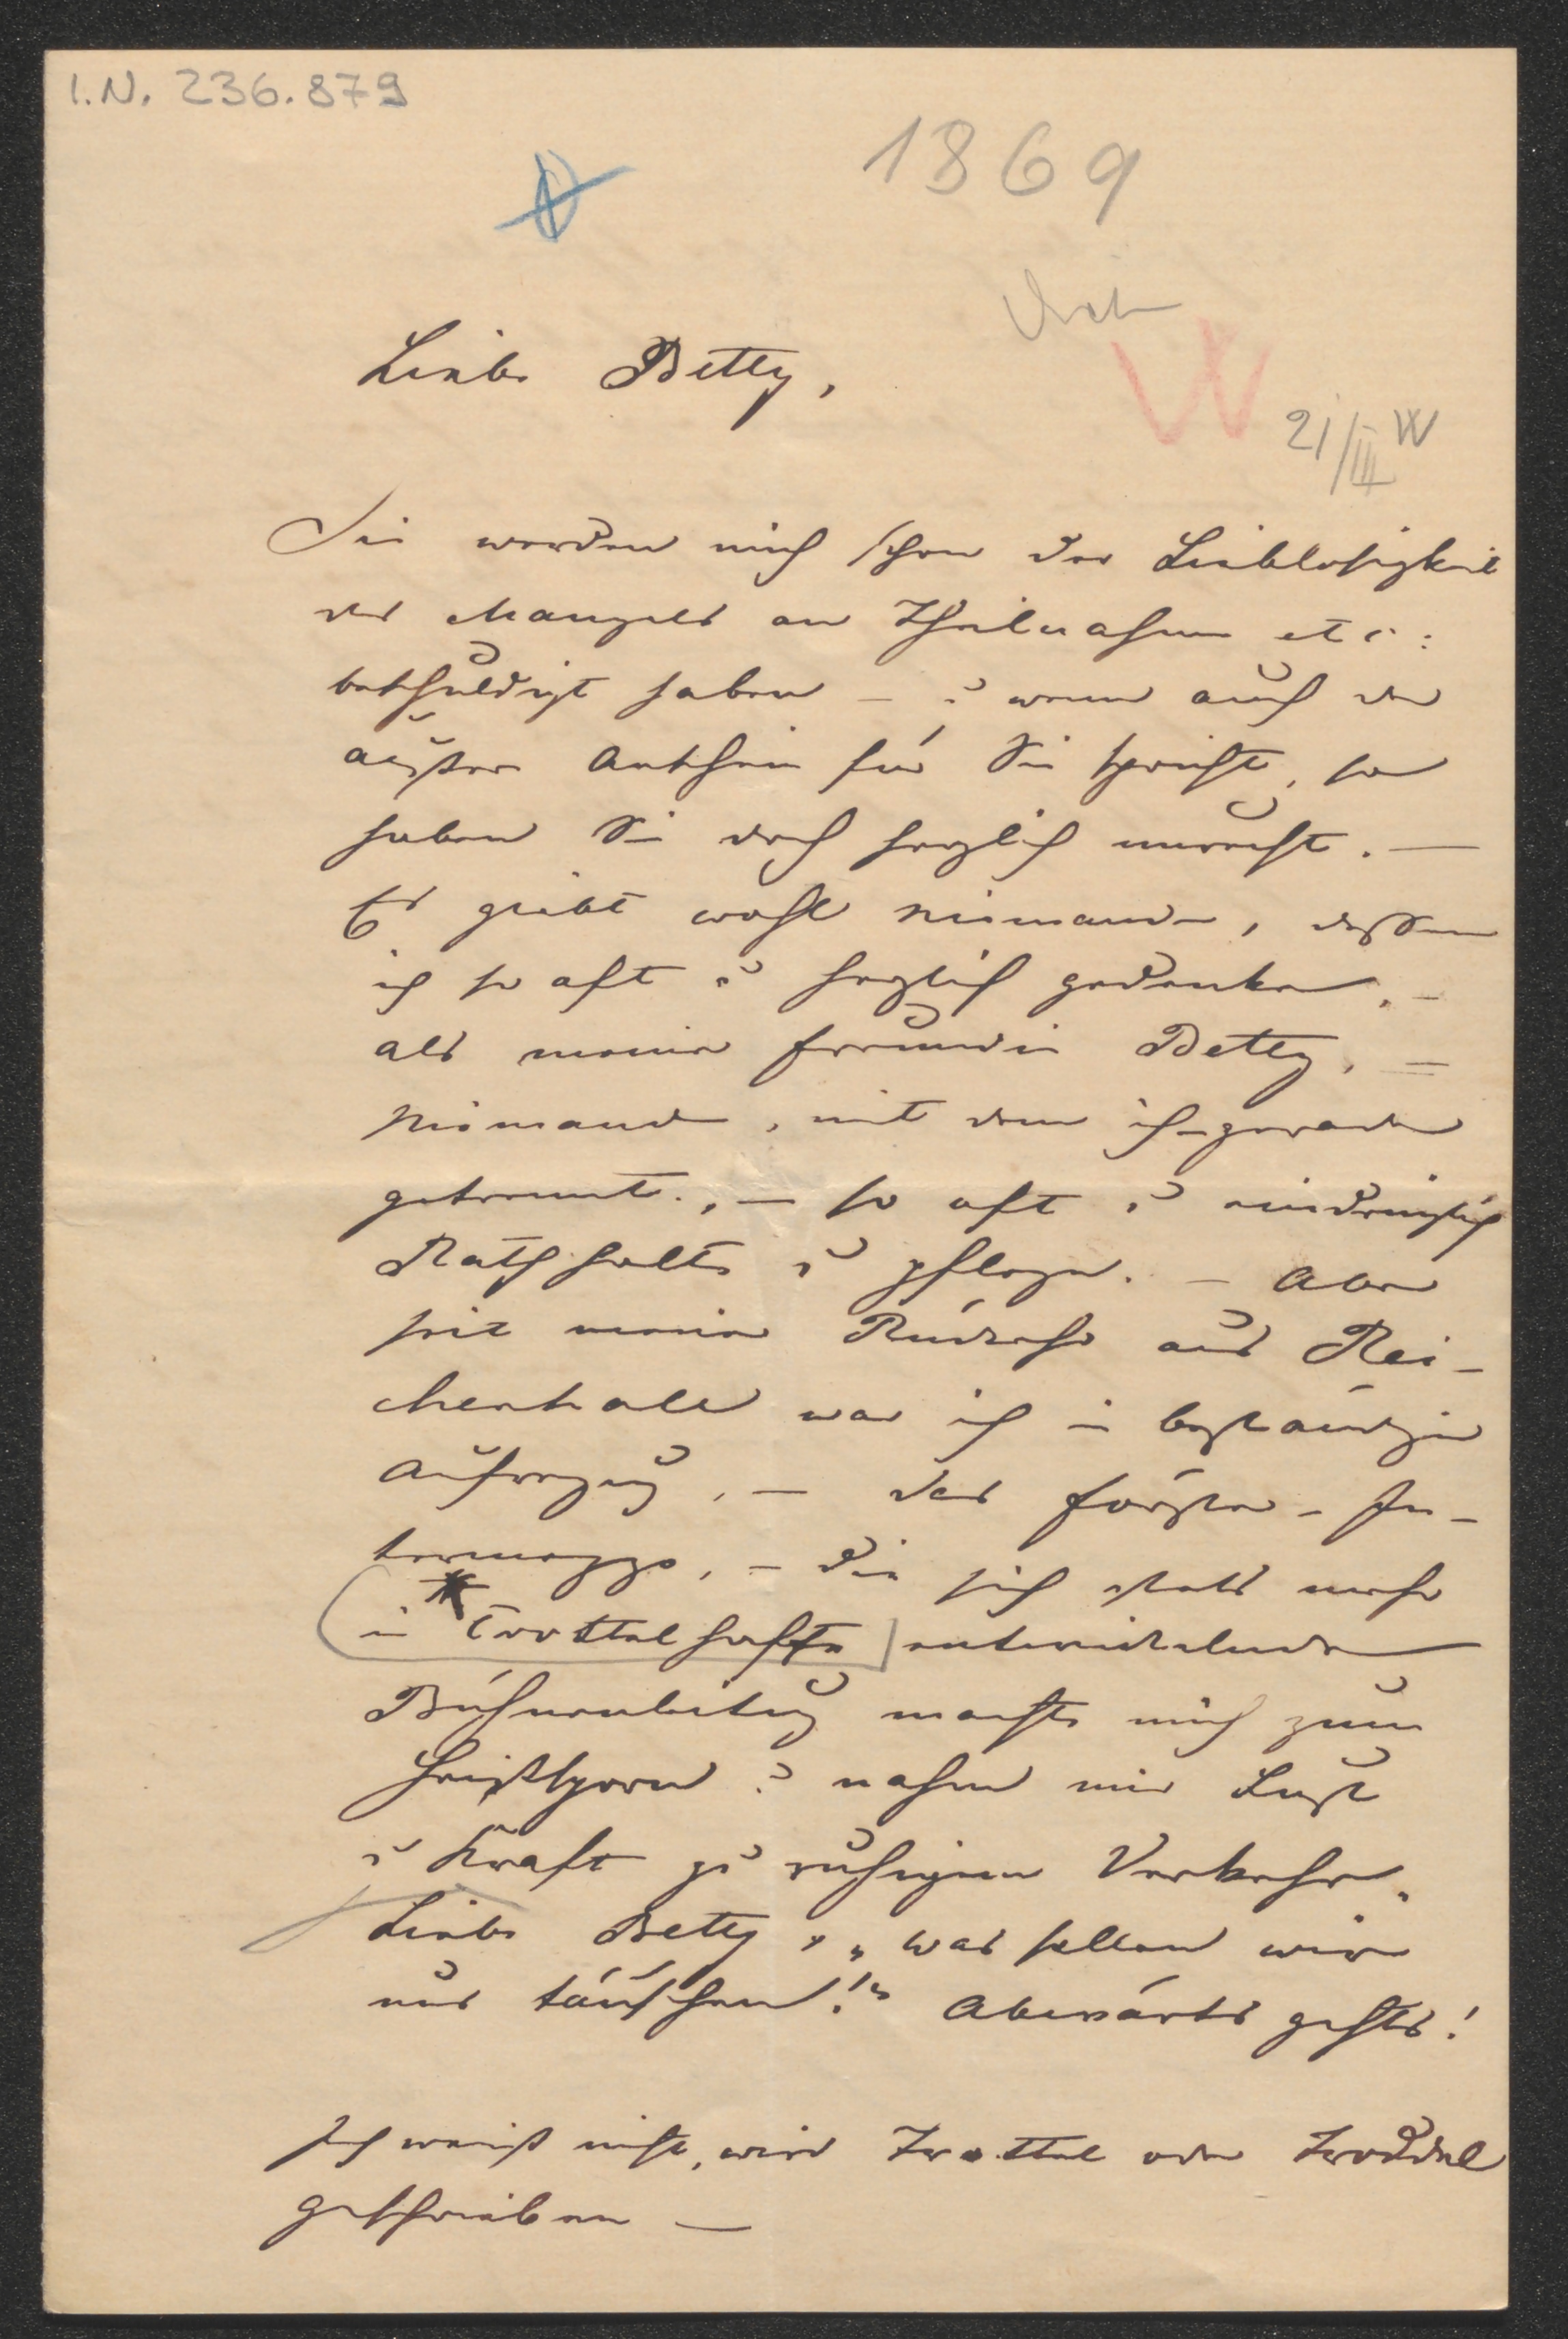 I.N. 236.879
1869
W
21/III W
Liebe Betty,
Sie werden mich schon der Lieblosigkeit
des Mangels an Theilnahme etc:
beschuldigt haben – u wenn auch der
äußere Anschein für Sie spricht, so
haben Sie doch herzlich unrecht. —
Es giebt wohl niemanden, dessen
ich so oft u herzlich gedenke, –
als meiner Freundin Betty, =
Niemanden, mit dem ich – gerade
getrennt, — so oft u eindringlich
Rath halte u pflege. – Aber
seit meiner Rückehr aus Rei-
chenhall war ich in beständiger
Aufregung, — das Förster-In-
termezzo, – die sich stets mehr
in * Trottelhafte entwickelnde
Bühnenleitung machte mich zum
Heißsporn u nahm mir Lust
u Kraft zu ruhigem Verkehr.
Liebe Betty, „was sollen wir
uns täuschen!“ Abwärts gehts!
Ich weiß nicht, wird Trottel oder Troddel
geschrieben —